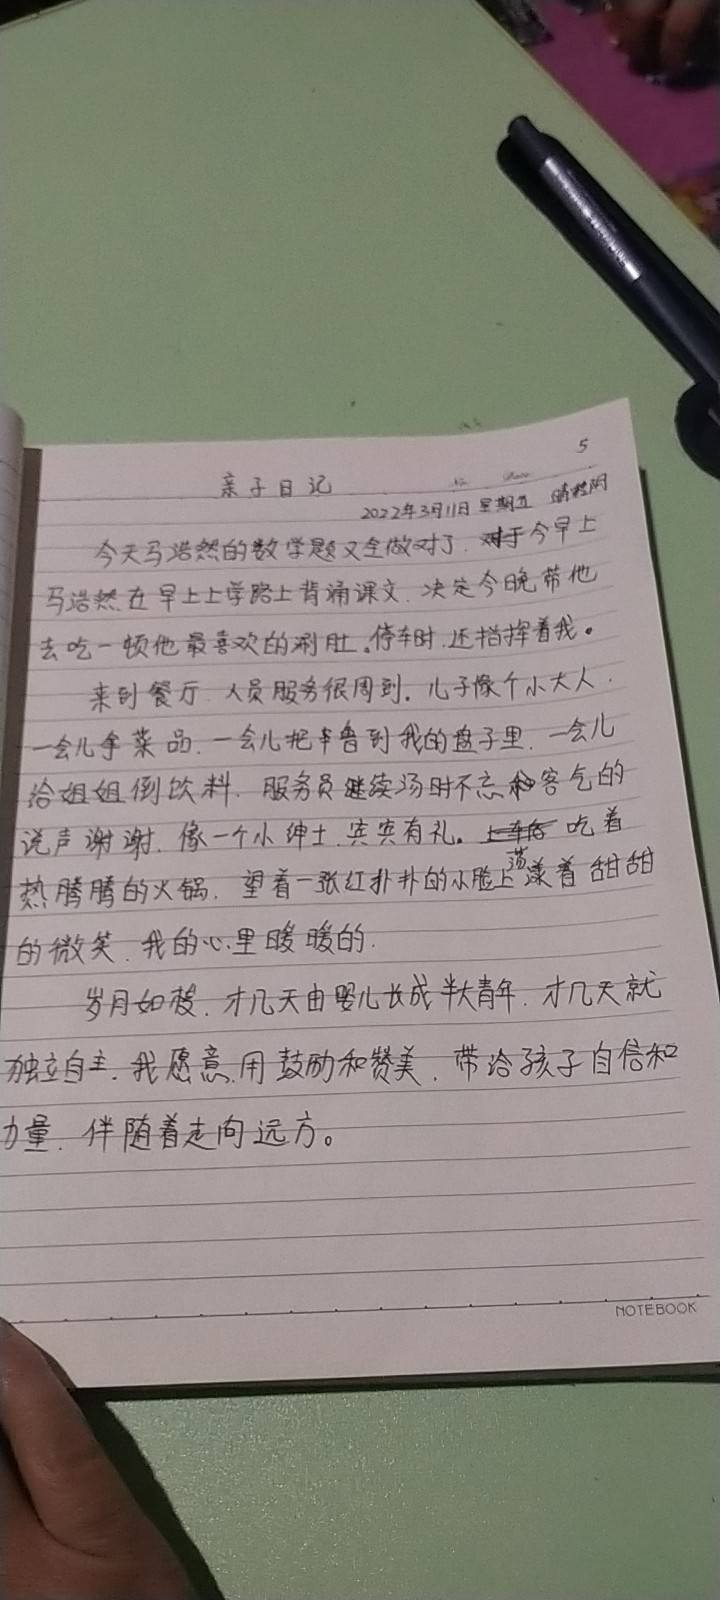 5
亲子日记
2022年3月11日 星期五 晴转阴
今天马浩然的数学题又全做对了.对于今早上
马浩然在早上上学路上背诵课文.决定今晚带他
去吃一顿他最喜欢的涮肚。停车时.还指挥着我。
来到餐厅.人员服务很周到.儿子像个小大人.
一会儿拿菜品.一会儿把辛鲁到我的盘子里.一会儿
给姐姐倒饮料.服务员继续汤时不忘客气的
说声谢谢.像一个小绅士.宾宾有礼。吃着
热腾腾的火锅.望着一张红扑扑的小脸上荡漾着甜甜
的微笑.我的心里暖暖的.
岁月如梭.才几天由婴儿长成半大青年.才几天就
独立自主.我愿意.用鼓励和赞美.带给孩子自信和
力量.伴随着走向远方。
NOTEBOOK